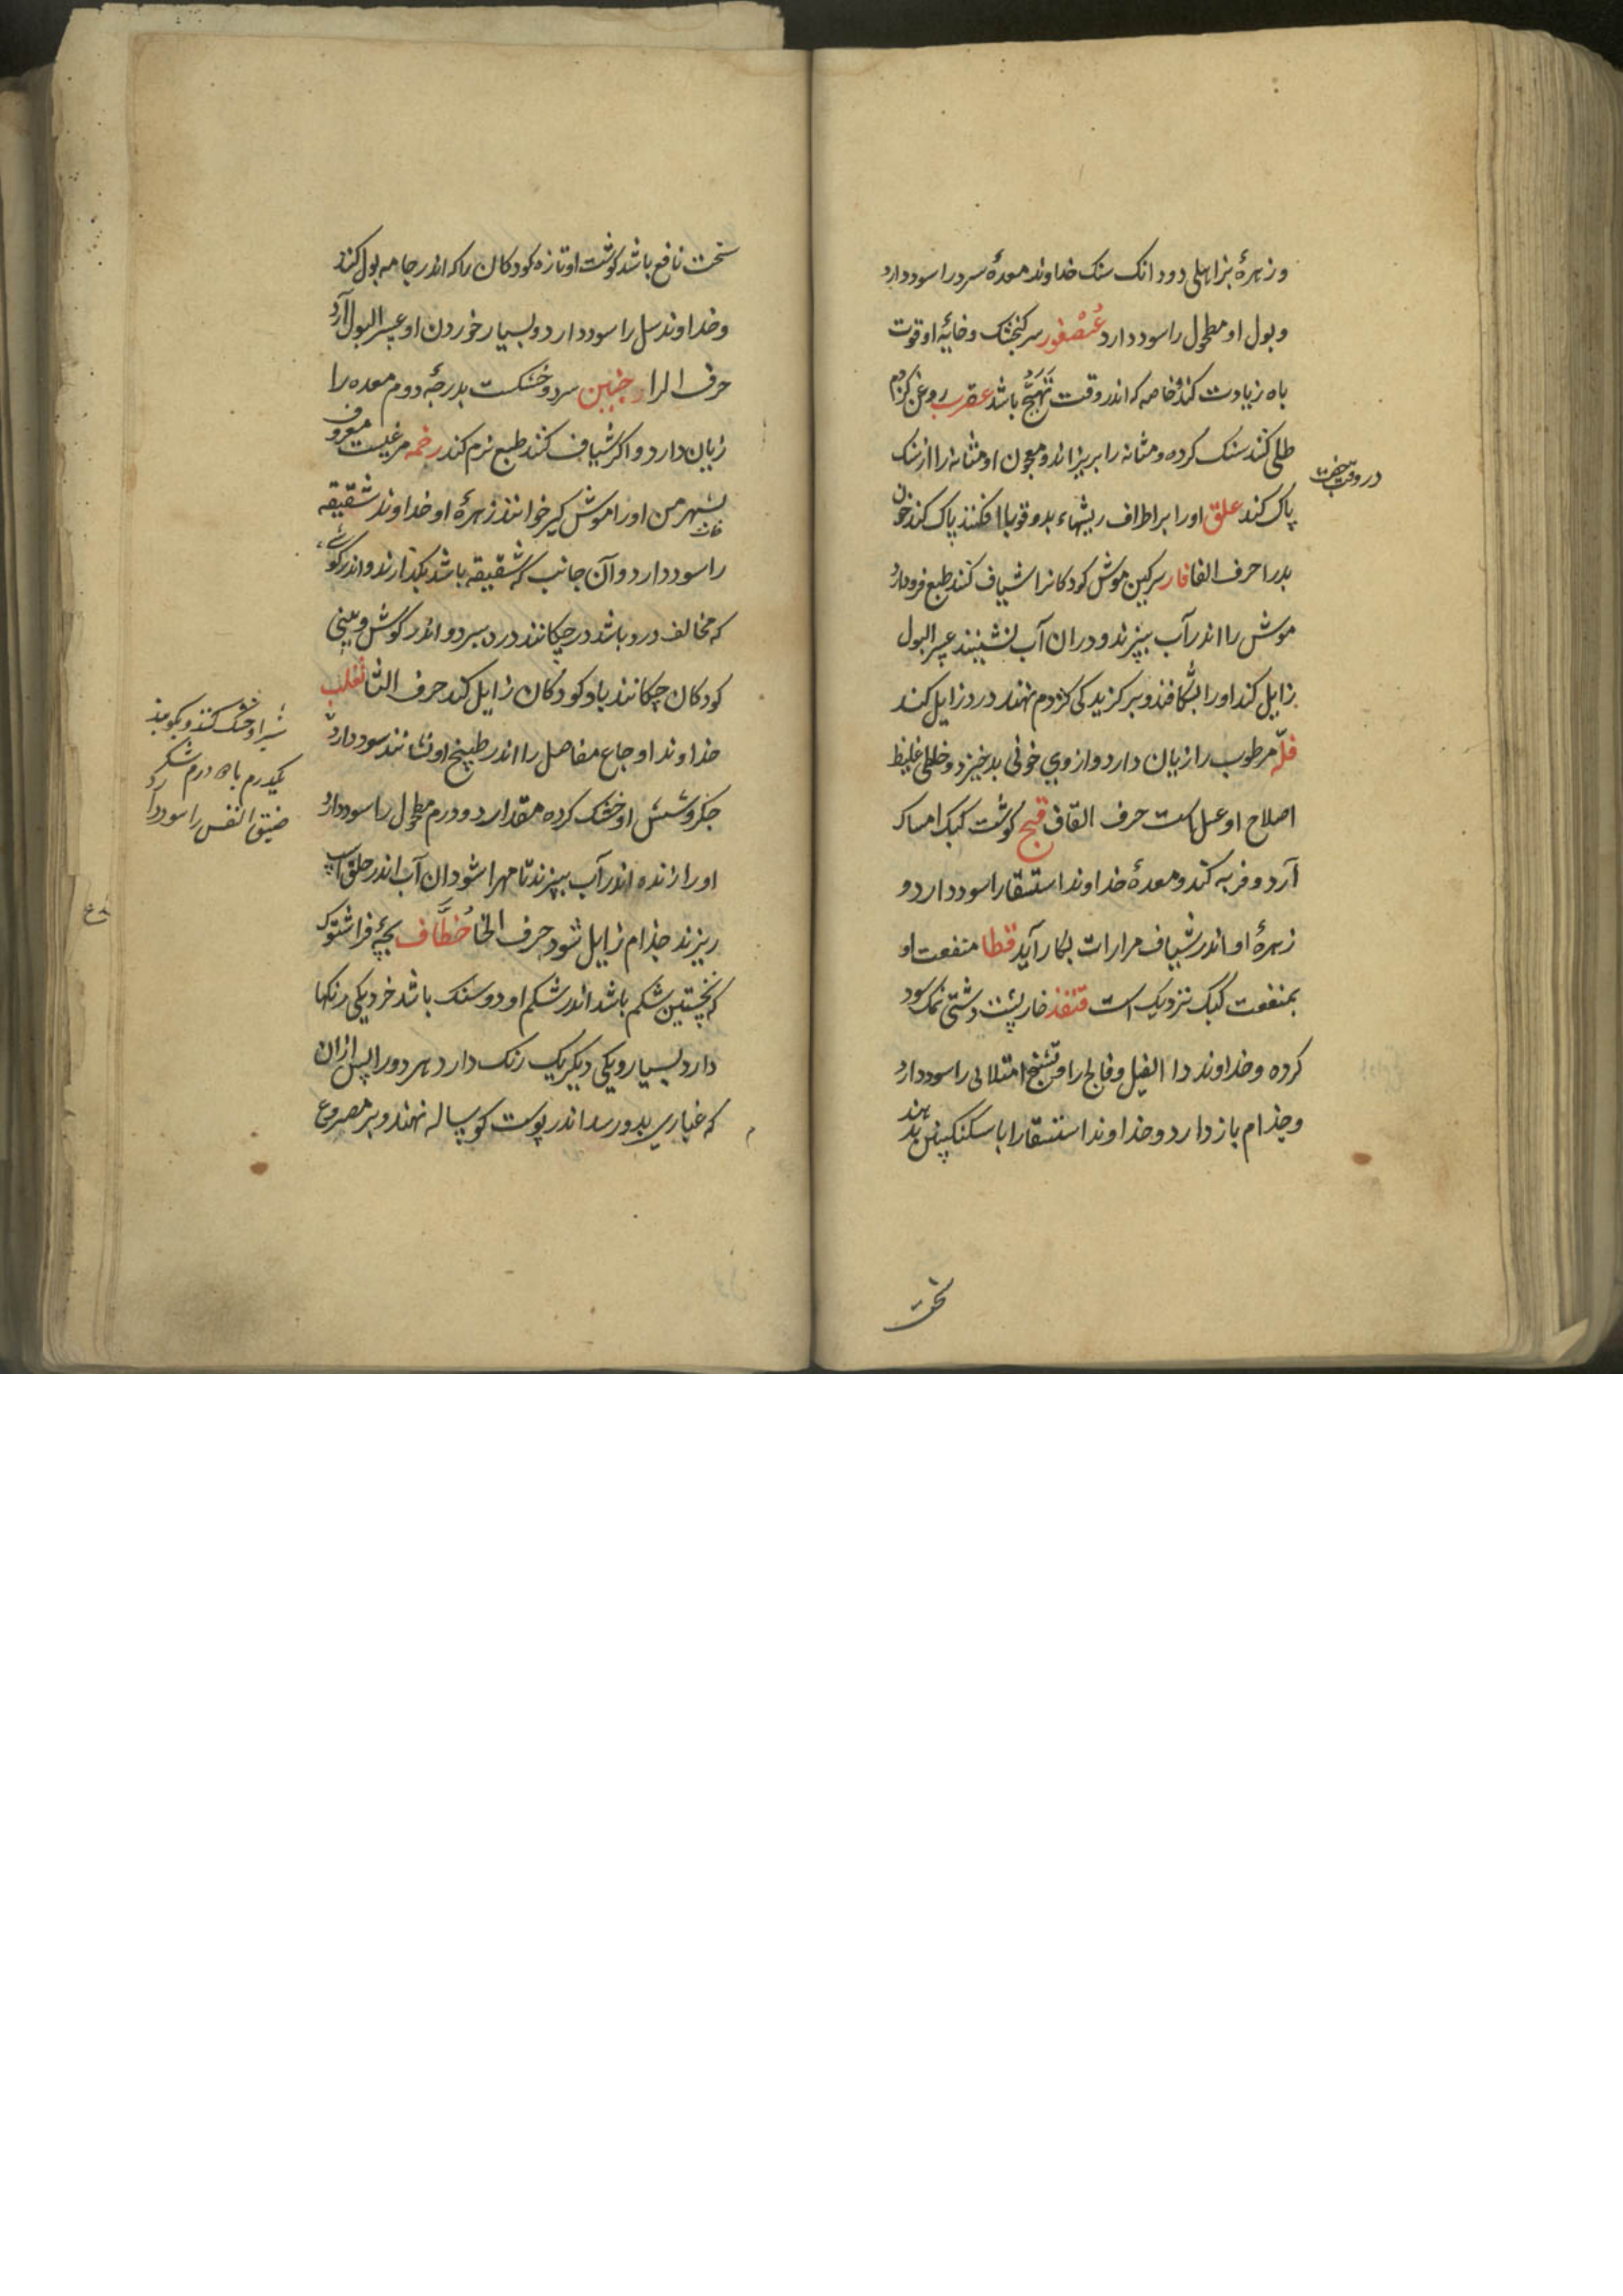 و زهرهٔ بز اهلی دو دانک سنک خداوند معدهٔ سرد را سود دارد
و بول او مطحول را سود دارد عُصْفور سر کنجشک و خایهٔ او قوت
باه زیادت کند و خاصه که اندر وقت تَهَیُّج باشد عقرب روغن کژدم
طلی کنند سنک کرده و مثانه را بریزاند و معجون او مثانه را از سنک
در وقت خفت
پاک کند علق او را بر اطراف ریشهاء بد و قوبا افکنند پاک کند خون
بد را حرف الفا فار سرکین موش کودکانرا شیاف کنند طبع فرود آرد
موش را اندر آب بپزند و در ان آب نشینند عسر البول
زایل کند او را بشکافند و بر کزیدکی کژدم نهند درد زایل کند
فلّه مرطوب را زیان دارد و از وی خونی بد خیزد و خلطی غلیظ
اصلاح او عسل است حرف القاف قبج کوشت کبک امساک
آرد و فربه کند و معدهٔ خداوند استسقا را سود دارد و
زهرهٔ او اندر شیاف مرارات بکار آید قطا منفعت او
بمنفعت کبک نزدیک است قنفذ خارپشت دشتی نمک سود
کرده و خداوند دا الفیل و فالج را و تشنج امتلائی را سود دارد
و جذام باز دارد و خداوند استسقا را با سکنکبین بدهند
سخت
سخت نافع باشد کوشت او تازه کودکان را که اندر جامه بول کنند
و خداوند سل را سود دارد و بسیار خوردن او عسر البول آرد
حرف الرا خبین سرد و خشکست بدرجهٔ دوم معده را
زیان دارد و اکر شیاف کنند طبع نرم کند رخمه مرغیست معروف
بشهر من او را موش کیر خوانند زهرهٔ او خداوند شقیقه
را سود دارد و آن جانب که شقیقه باشد بکذارند و اندر کوش
که مخالف درد باشد در چکانند درد ببرد و اندر کوش و بینی
کودکان چکانند باد کودکان زایل کند حرف الثا ثعلب
خداوند اوجاع مفاصل را اندر طبیخ او نشانند سود دارد
جکر و شش او خشک کرده مقدار دو درم مطحول را سود دارد
شش او خشک کنند و بکوبند
یکدرم با ده درم شکر
ضیق النفس را سود دارد
او را زنده اندر آب بپزند تا مهرا شود ان آب اندر حلق اسپ
ریزند جذام زایل شود حرف الخا خُطَّاف بچهٔ فراشتوک
که نخستین شکم باشد اندر شکم او دو سنک باشد خرد یکی رنکها
دارد بسیار و یکی دیکر یک رنک دارد هر دو را پیش ازان
که غباری بدو رسد اندر پوست کوساله نهند و بر مصروع